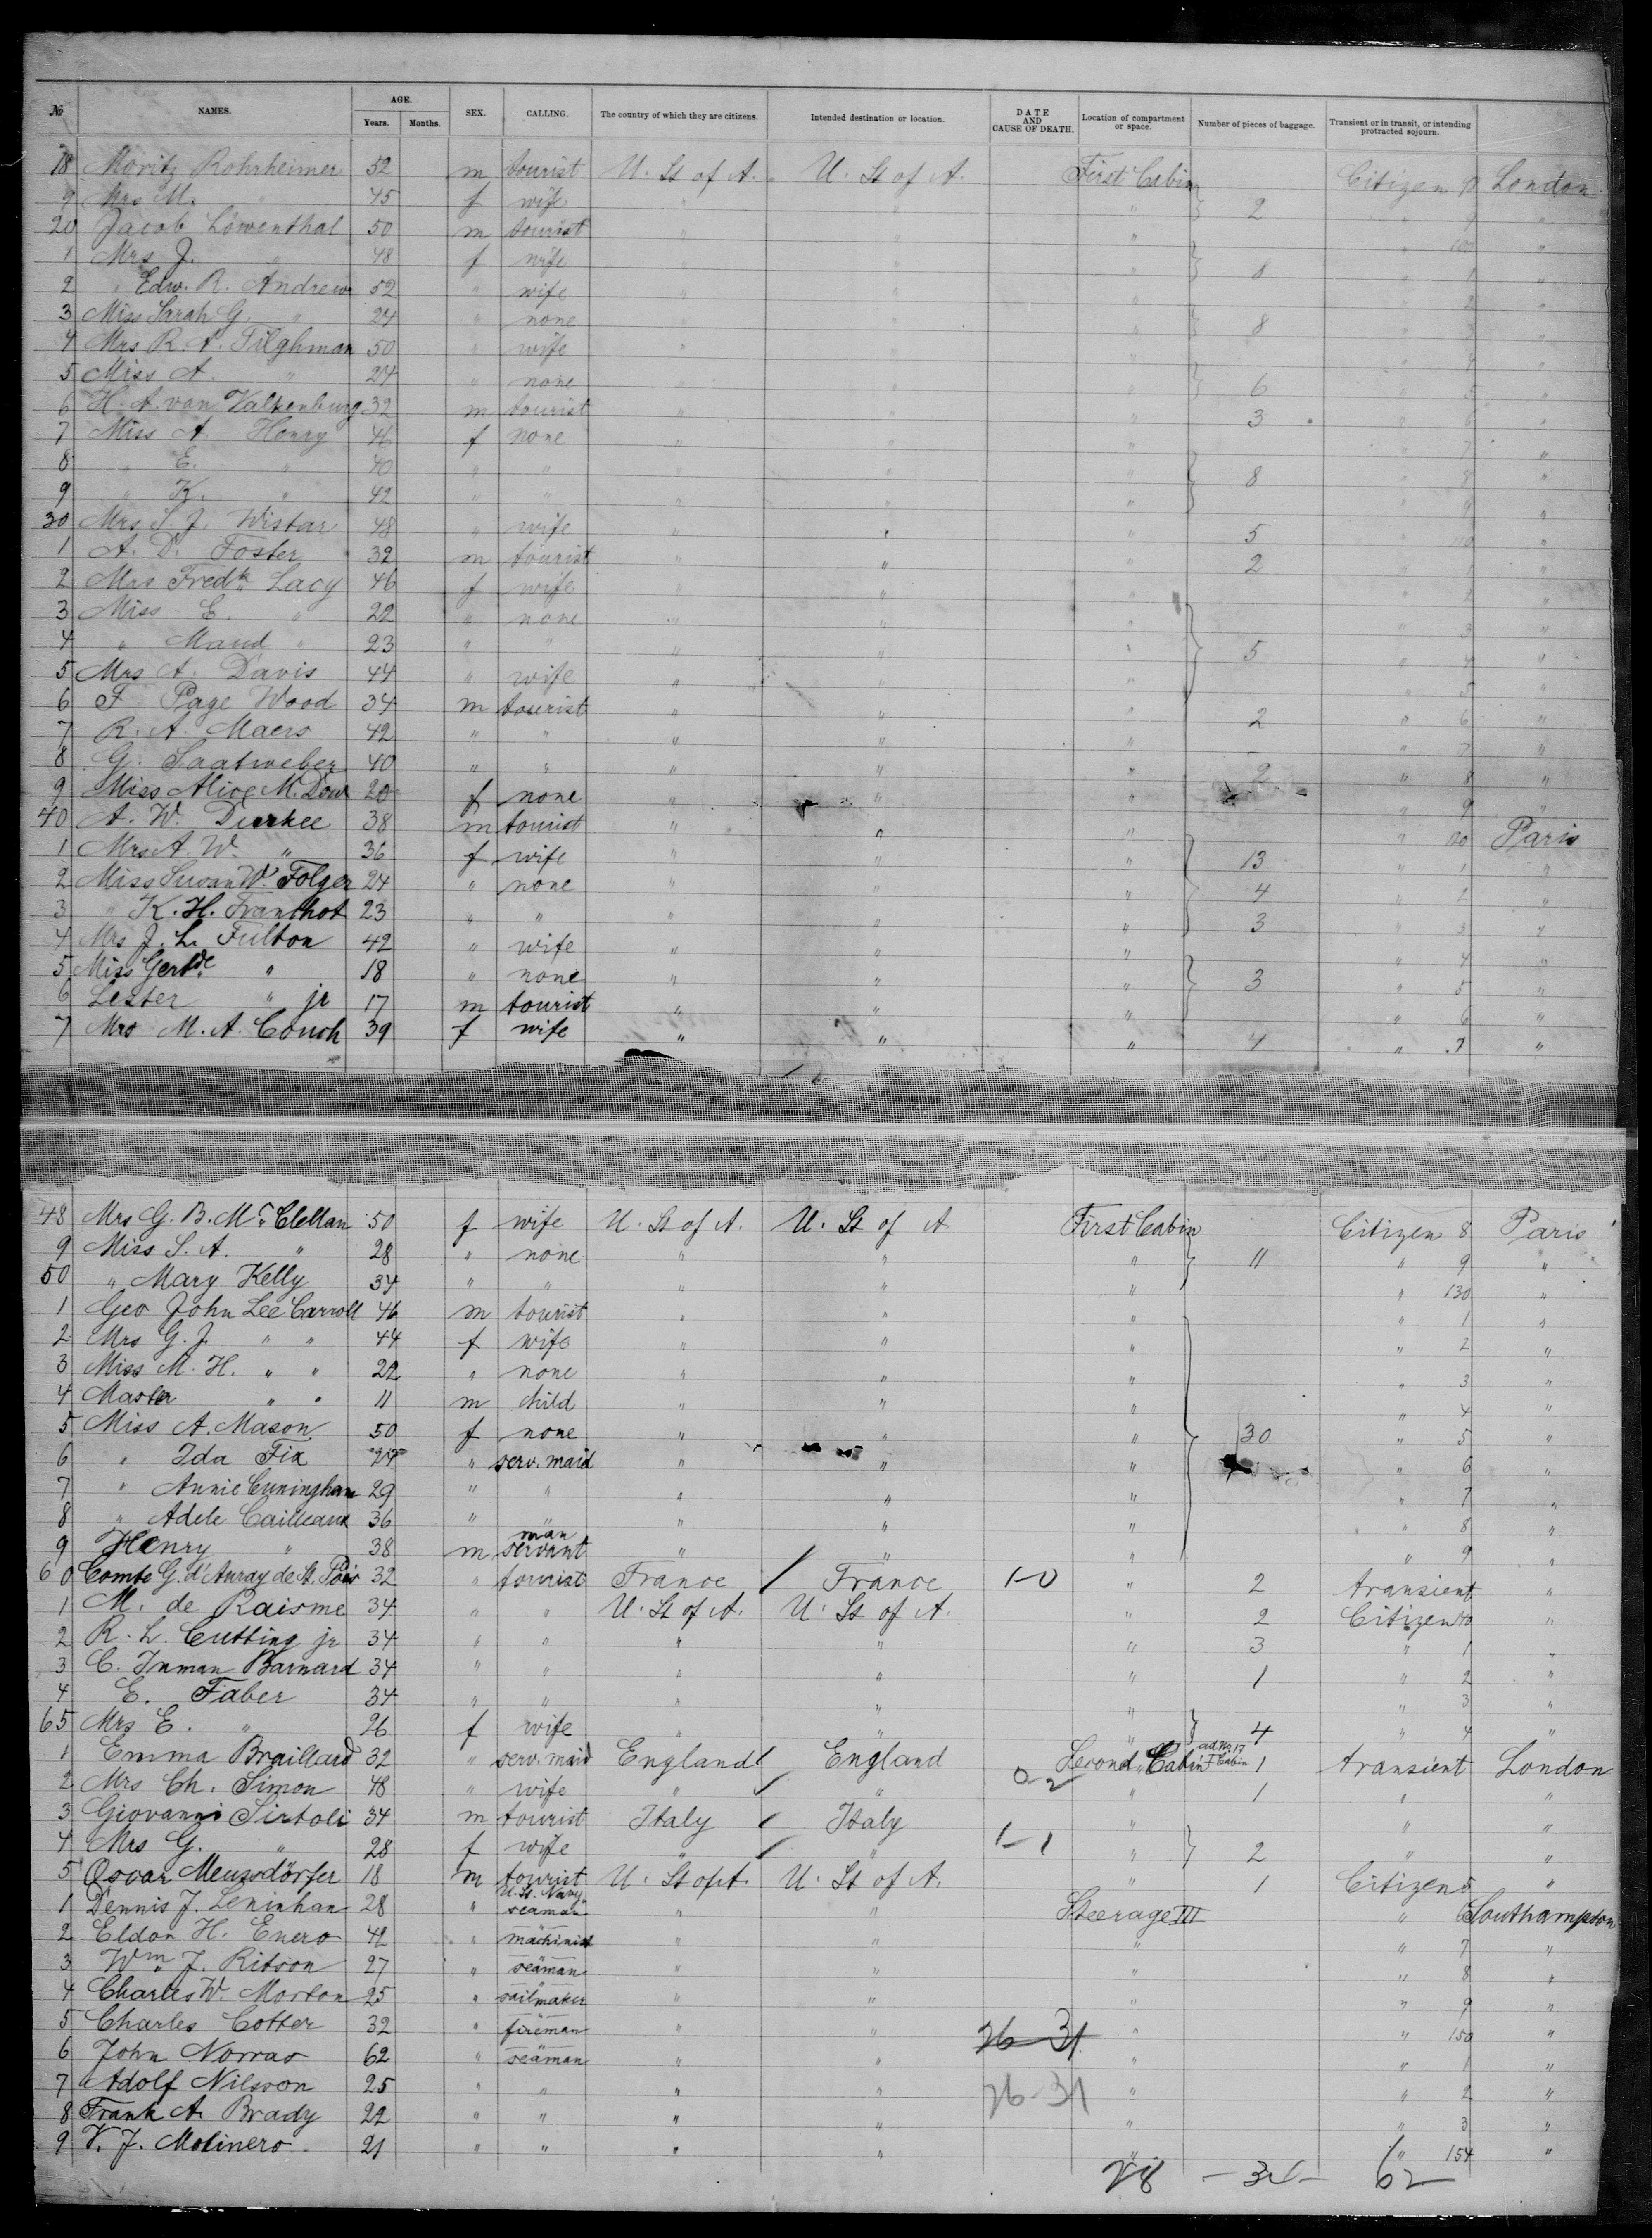 № NAMES. AGE. Years. Months. SEX. CALLING. The country of which they are citizens. Intended destination or location. DATE AND CAUSE OF DEATH. Location of compartment or space. Number of pieces of baggage. Transient or in transit, or intending protracted sojourn.
18 Moritz Rohrheimer 52 m tourist U. St of A. U. St of A. First Cabin Citizen 8 London
9 Mrs M. " 45 f wife " " " } 2 " 9 "
20 Jacob Löwenthal 50 m tourist " " " " 100 "
1 Mrs J. " 48 f wife " " " } 8 " 1 "
2 " Edw. R. Andrews 52 " wife " " " " 2 "
3 Miss Sarah G. " 24 " none " " " } 8 " 3 "
4 Mrs R. A. Tilghman 50 " wife " " " " 4 "
5 Miss A. " 24 " none " " " } 6 " 5 "
6 H. A. van Valkenburg 32 m tourist " " " 3 " 6 "
7 Miss A. Henry 46 f none " " " " 7 "
8 " E. " 40 " " " " " } 8 " 8 "
9 " K. " 42 " " " " " " 9 "
30 Mrs S. J. Wistar 48 " wife " " " 5 " 110 "
1 A. D. Foster 32 m tourist " " " 2 " 1 "
2 Mrs Fredk Lacy 46 f wife " " " " 2 "
3 Miss E. " 22 " none " " " " 3 "
4 " Maud " 23 " " " " } 5 " 4 "
5 Mrs A. Davis 44 " wife " " " " 5 "
6 F. Page Wood 34 m tourist " " " 2 " 6 "
7 R. A. Maers 42 " " " " " — " 7 "
8 G. Saatweber 40 " " " " " 2 " 8 "
9 Miss Alice M. Dow 20 f none " " " " 9 "
40 A. W. Durkee 38 m tourist " " " " 120 Paris
1 Mrs A. W. " 36 f wife " " " } 13 " 1 "
2 Miss Susan W. Folger 24 " none " " " 4 " 2 "
3 " K. H. Franchot 23 " " " " " 3 " 3 "
4 Mrs J. L. Fulton 42 " wife " " " " 4 "
5 Miss Gertde " 18 " none " " " } 3 " 5 "
6 Lester " jr 17 m tourist " " " " 6 "
7 Mrs M. A. Couch 39 f wife " " " 4 " 7 "
48 Mrs G. B. Mc Clellan 50 f wife U. St of A. U. St of A. First Cabin Citizen 8 Paris
9 Miss S. A. " 28 " none " " " } 11 " 9 "
50 " Mary Kelly 34 " " " " " " 130 "
1 Geo John Lee Carroll 46 m tourist " " " " 1 "
2 Mrs G. J. " " 44 f wife " " " " 2 "
3 Miss M. H. " " 22 " none " " " " 3 "
4 Master " " 11 m child " " " " 4 "
5 Miss A. Mason 50 f none " " " } 30 " 5 "
6 " Ida Fix 24 " serv. maid " " " " 6 "
7 " Annie Cuningham 29 " " " " " " 7 "
8 " Adele Cailleaux 36 " " " " " " 8 "
9 Henry " 38 m man servant " " " " 9 "
60 Comte G. d'Auray de St. Pois 32 " tourist France / France 1-0 " 2 transient "
1 M. de Raisme 34 " " U. St of A. U. St of A. " 2 Citizen 40 "
2 R. L. Cutting jr 34 " " " " " 3 " 1 "
3 C. Inman Barnard 34 " " " " " 1 " 2 "
4 E. Faber 34 " " " " " " 3 "
65 Mrs E. " 26 f wife " " " } 4 " 4 "
1 Emma Braillard 32 " serv. maid England / England Second Cabin ad No. 17 F Cabin 1 transient London
2 Mrs Ch. Simon 48 " wife " / " 0-2 " 1 " "
3 Giovanni Sirtoli 34 m tourist Italy / Italy " " "
4 Mrs G. " 28 f wife " / " 1-1 " } 2 " "
5 Oscar Meusdörfer 18 m tourist U. St of A. U. St of A. " 1 Citizen 5 "
1 Dennis J. Leninhan 28 " U. St. Navy seaman " " Steerage III " 6 Southampton
2 Eldon H. Enero 42 " machinist " " " " 7 "
3 Wm J. Ritson 27 " seaman " " " " 8 "
4 Charles W. Morton 25 " sailmaker " " " " 9 "
5 Charles Cotter 32 " fireman " " 26-31 " " 150 "
6 John Norras 62 " seaman " " " " 1 "
7 Adolf Nilsson 25 " " " " 26-31 " " 2 "
8 Frank A. Brady 22 " " " " " " 3 "
9 V. J. Molinero 21 " " " " " " 154 "
28 - 34 - 62